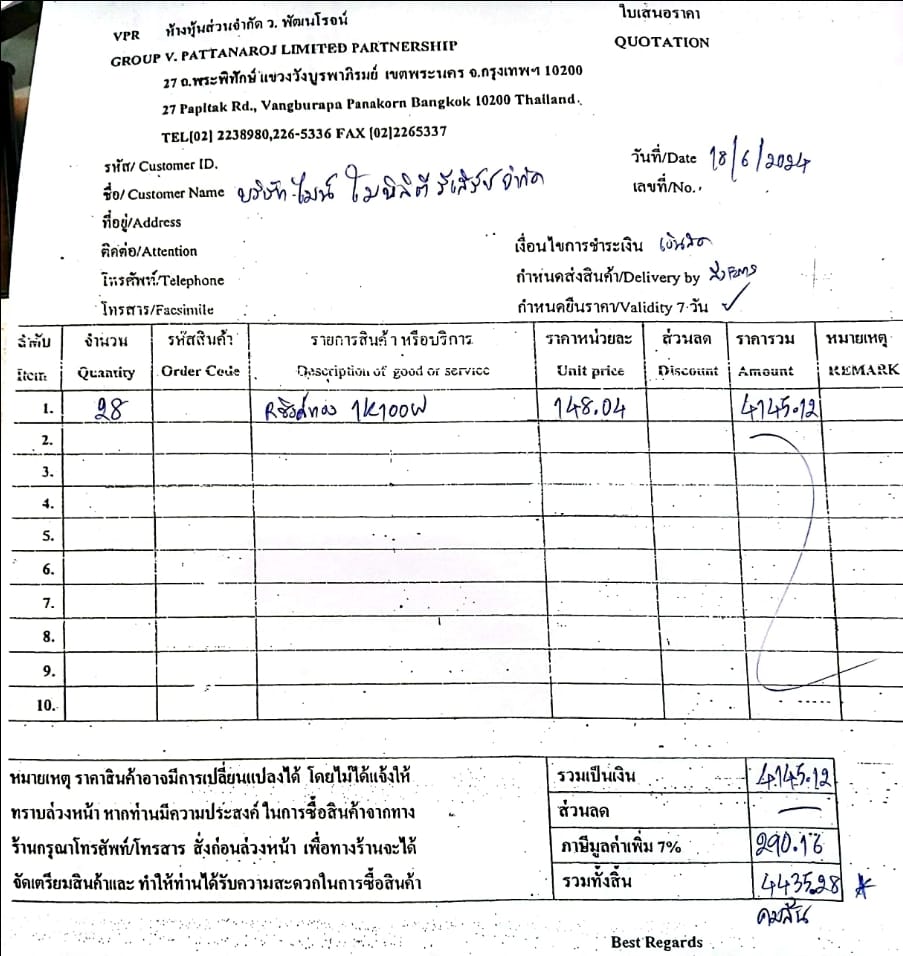 VPR ห้างหุ้นส่วนจำกัด ว. พัฒนโรจน์
ใบเสนอราคา
GROUP V. PATTANAROJ LIMITED PARTNERSHIP
QUOTATION
27 ถ.พระพิทักษ์ แขวงวังบูรพาภิรมย์ เขตพระนคร จ.กรุงเทพฯ 10200
27 Papitak Rd., Vangburapa Panakorn Bangkok 10200 Thailand.
TEL[02] 2238980,226-5336 FAX [02]2265337
รหัส/ Customer ID.
วันที่/Date 18/6/2024
ชื่อ/ Customer Name บริษัท ไมน์ โมบิลิตี รีเสิร์ช จำกัด
เลขที่/No.
ที่อยู่/Address
ติดต่อ/Attention
เงื่อนไขการชำระเงิน เงินสด
โทรศัพท์/Telephone
กำหนดส่งสินค้า/Delivery by
โทรสาร/Facsimile
กำหนดยืนราคา/Validity 7 วัน ✓
ลำดับ จำนวน รหัสสินค้า รายการสินค้า หรือบริการ ราคาหน่วยละ ส่วนลด ราคารวม หมายเหตุ
Item Quantity Order Code Description of good or service Unit price Discount Amount REMARK
1. 28 Rซิงค์ทอง 1K100W 148.04 4145.12
2.
3.
4.
5.
6.
7.
8.
9.
10.
หมายเหตุ ราคาสินค้าอาจมีการเปลี่ยนแปลงได้ โดยไม่ได้แจ้งให้
รวมเป็นเงิน 4145.12
ทราบล่วงหน้า หากท่านมีความประสงค์ ในการซื้อสินค้าจากทาง
ส่วนลด —
ร้านกรุณาโทรศัพท์/โทรสาร สั่งก่อนล่วงหน้า เพื่อทางร้านจะได้
ภาษีมูลค่าเพิ่ม 7% 290.16
จัดเตรียมสินค้าและ ทำให้ท่านได้รับความสะดวกในการซื้อสินค้า
รวมทั้งสิ้น 4435.28
คมสัน
Best Regards